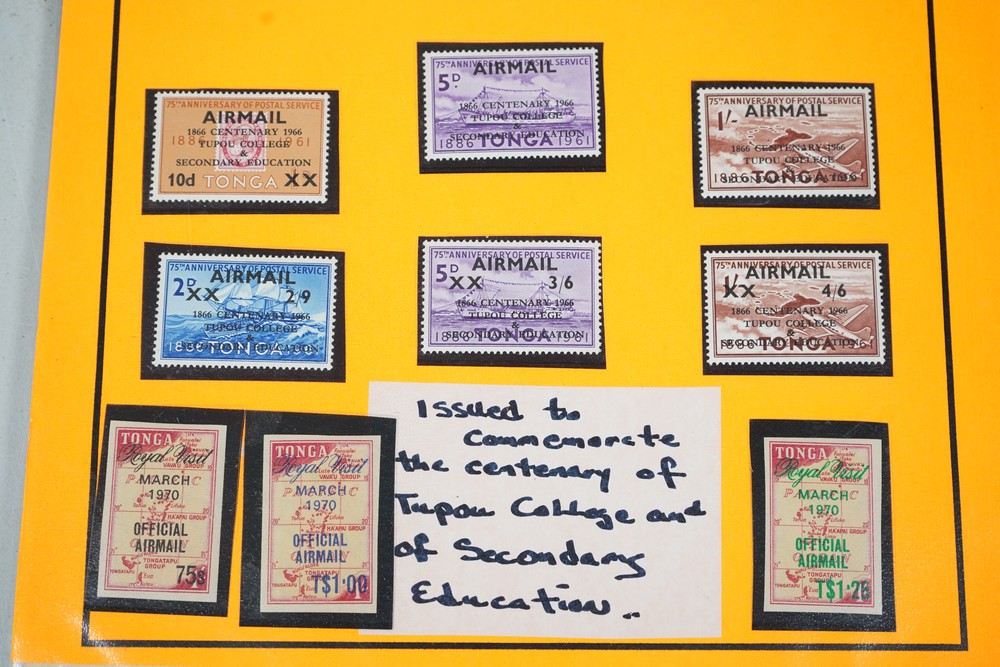 75TH ANNIVERSARY OF POSTAL SERVICE
AIRMAIL
1866 CENTENARY 1966
1886 TUPOU COLLEGE 1961
&
SECONDARY EDUCATION
10d TONGA XX
75TH ANNIVERSARY OF POSTAL SERVICE
AIRMAIL
5D
1866 CENTENARY 1966
TUPOU COLLEGE
&
SECONDARY EDUCATION
1886 TONGA 1961
75TH ANNIVERSARY OF POSTAL SERVICE
AIRMAIL
1/-
1866 CENTENARY 1966
TUPOU COLLEGE
&
SECONDARY EDUCATION
1886 TONGA 1961
75TH ANNIVERSARY OF POSTAL SERVICE
AIRMAIL
2D XX 2/9
1866 CENTENARY 1966
TUPOU COLLEGE
&
SECONDARY EDUCATION
1886 TONGA 1961
75TH ANNIVERSARY OF POSTAL SERVICE
AIRMAIL
5D XX 3/6
1866 CENTENARY 1966
TUPOU COLLEGE
&
SECONDARY EDUCATION
1886 TONGA 1961
75TH ANNIVERSARY OF POSTAL SERVICE
AIRMAIL
1/- XX 4/6
1866 CENTENARY 1966
TUPOU COLLEGE
&
SECONDARY EDUCATION
1886 TONGA 1961
TONGA
Royal Visit
VAVA'U GROUP
MARCH
1970
HA'APAI GROUP
OFFICIAL
AIRMAIL
TONGATAPU GROUP
TONGATAPU
75s
TONGA
Royal Visit
VAVA'U GROUP
MARCH
1970
HA'APAI GROUP
OFFICIAL
AIRMAIL
TONGATAPU
GROUP
T$1·00
Issued to
Commemorate
the centenary of
Tupou College and
of Secondary
Education..
TONGA
Royal Visit
VAVA'U GROUP
MARCH
1970
HA'APAI GROUP
OFFICIAL
AIRMAIL
TONGATAPU
T$1·25